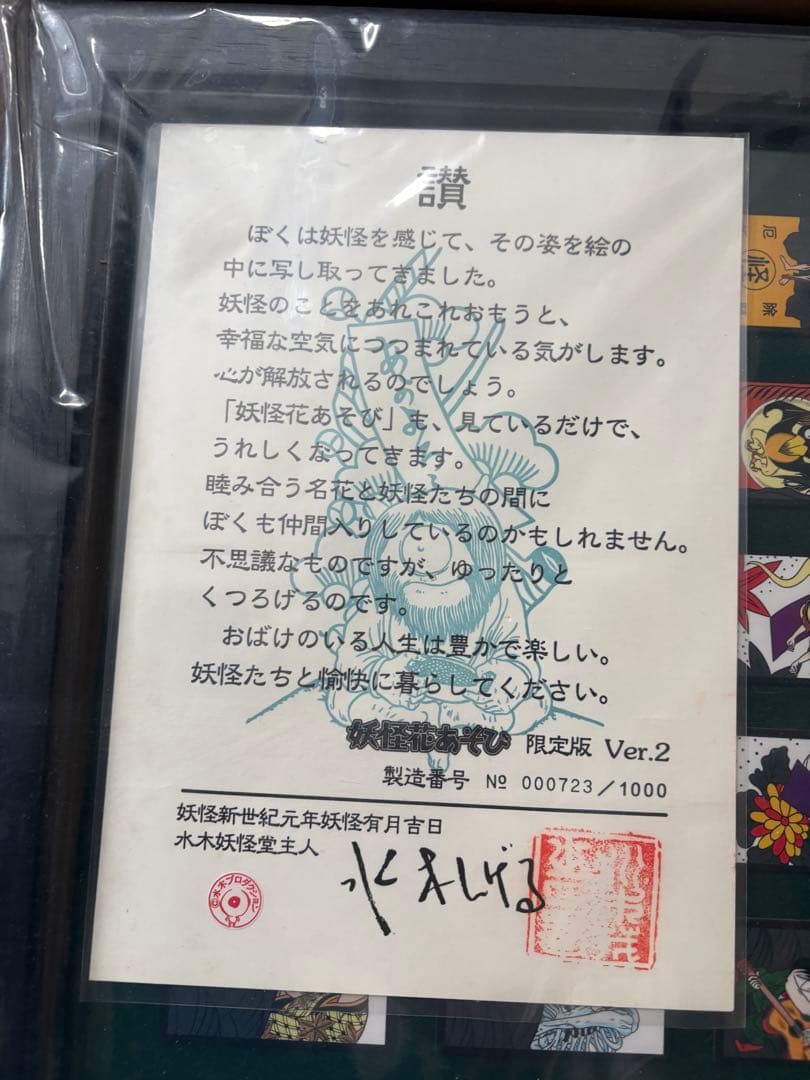 讃
ぼくは妖怪を感じて、その姿を絵の
中に写し取ってきました。
妖怪のことをあれこれおもうと、
幸福な空気につつまれている気がします。
心が解放されるのでしょう。
「妖怪花あそび」も、見ているだけで、
うれしくなってきます。
睦み合う名花と妖怪たちの間に
ぼくも仲間入りしているのかもしれません。
不思議なものですが、ゆったりと
くつろげるのです。
おばけのいる人生は豊かで楽しい。
妖怪たちと愉快に暮らしてください。
妖怪花あそび 限定版 Ver.2
製造番号 № 000723/1000
妖怪新世紀元年妖怪有月吉日
水木妖怪堂主人
水木しげる
©水木プロダクション
厄
怪
除